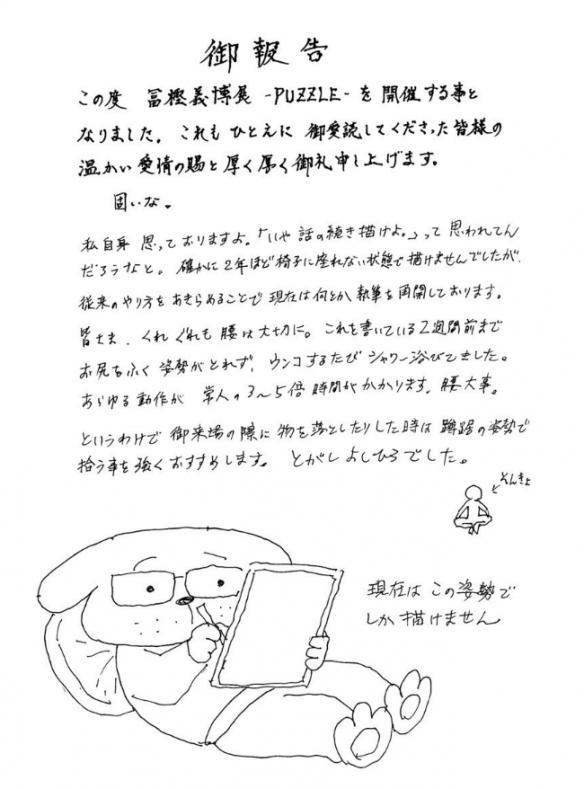 御報告
この度 冨樫義博展 -PUZZLE- を開催する事と
なりました。これもひとえに 御愛読してくださった皆様の
温かい愛情の賜と厚く厚く御礼申し上げます。
固いな。
私自身 思っておりますよ。「いや 話の続き描けよ。」って 思われてん
だろうなと。確かに2年ほど椅子に座れない状態で描けませんでしたが、
従来のやり方をあきらめることで現在は何とか執筆を再開しております。
皆さま、くれぐれも 腰は大切に。これを書いている2週間前まで
お尻もふく姿勢がとれず、ウンコするたびシャワー浴びてました。
あらゆる動作が 常人の3〜5倍時間がかかります。腰大事。
というわけで 御来場の際に 物を落としたりした時は 蹲踞の姿勢で
拾う事を強くおすすめします。とがしよしひろでした。
そんきょ
現在はこの姿勢で
しか描けません